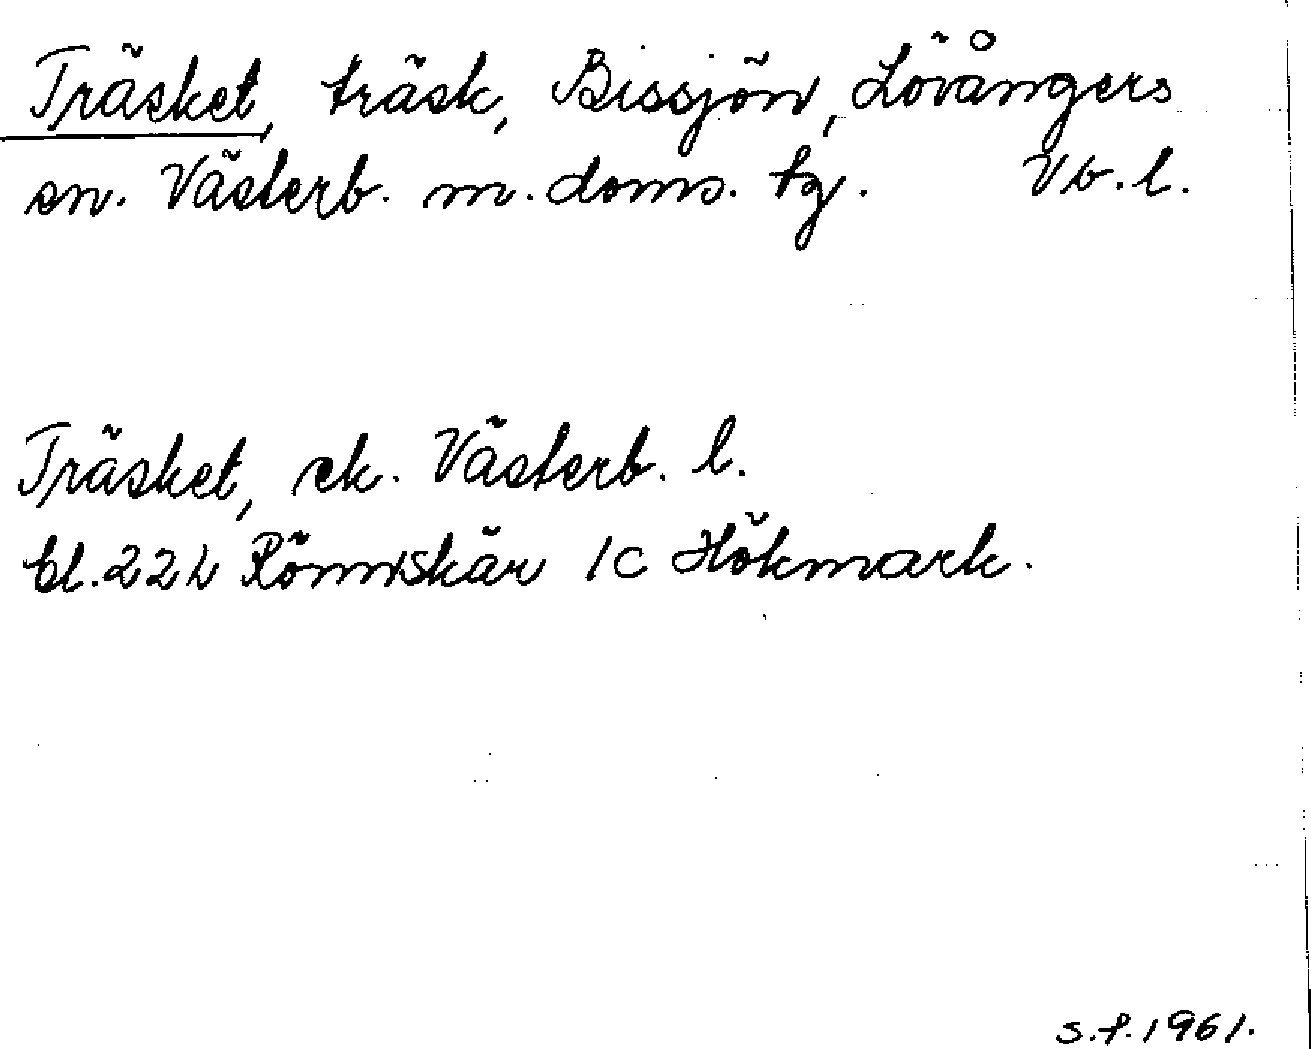 Träsket, träsk, Bissjön, Lövångers
sn. Västerb. m. doms. tg. Vb. l.
Träsket, ek. Västerb. l.
bl. 22L Rönnskär 1c Hökmark.
s.f. 1961.